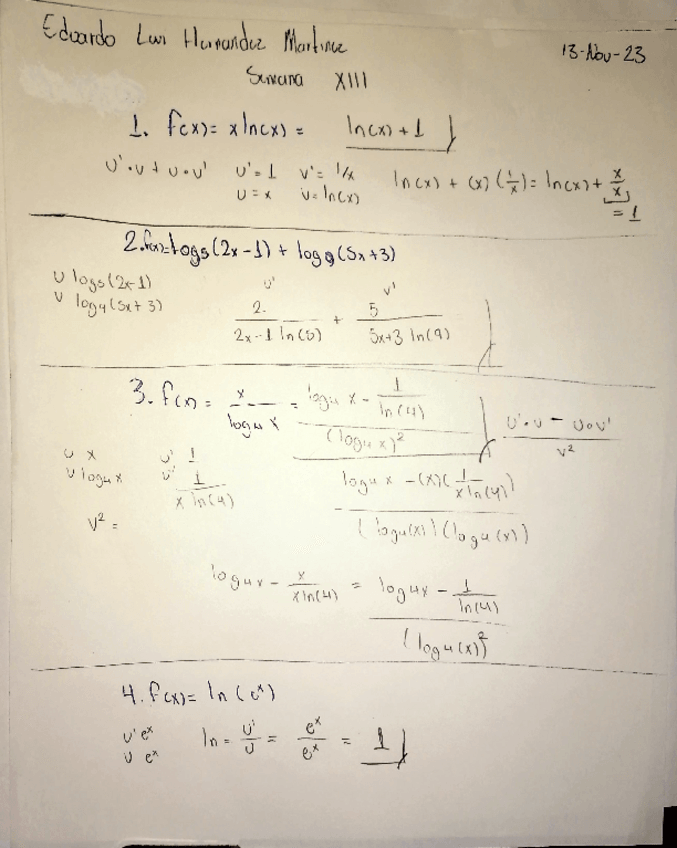 Eduardo Luis Hernandez Martinez
13-Nov-23
Semana XIII
1. f(x)= x ln(x) = ln(x) + 1
u'·v + u·v' u'= 1 v'= 1/x ln(x) + (x) (1/x) = ln(x) + x/x
u = x v = ln(x) = 1
2. f(x)=log5(2x-1) + log9(5x+3)
u log5(2x-1) u' v'
v log9(5x+3) 2 / 2x-1 ln(5) + 5 / 5x+3 ln(9)
3. f(x) = x / log4 x = log4 x - 1/ln(4) / (log4 x)² u'·v - u·v' / v²
u x u' 1
v log4 x v' 1 / x ln(4) log4 x - (x)(1 / x ln(4)) / (log4(x))(log4(x))
v² =
log4x - x / x ln(4) = log4x - 1 / ln(4)
(log4(x))²
4. f(x)= ln(e^x)
u' e^x ln = u'/u = e^x/e^x = 1
u e^x